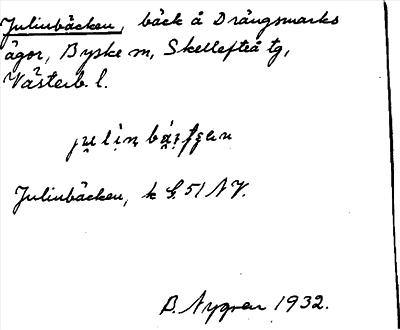 Julinbäcken, bäck å Drängsmarks
ägor, Byske m, Skellefteå tg,
Västerb. l.
Julinbäcken, k G. 51 NV.
B. Nygren 1932.